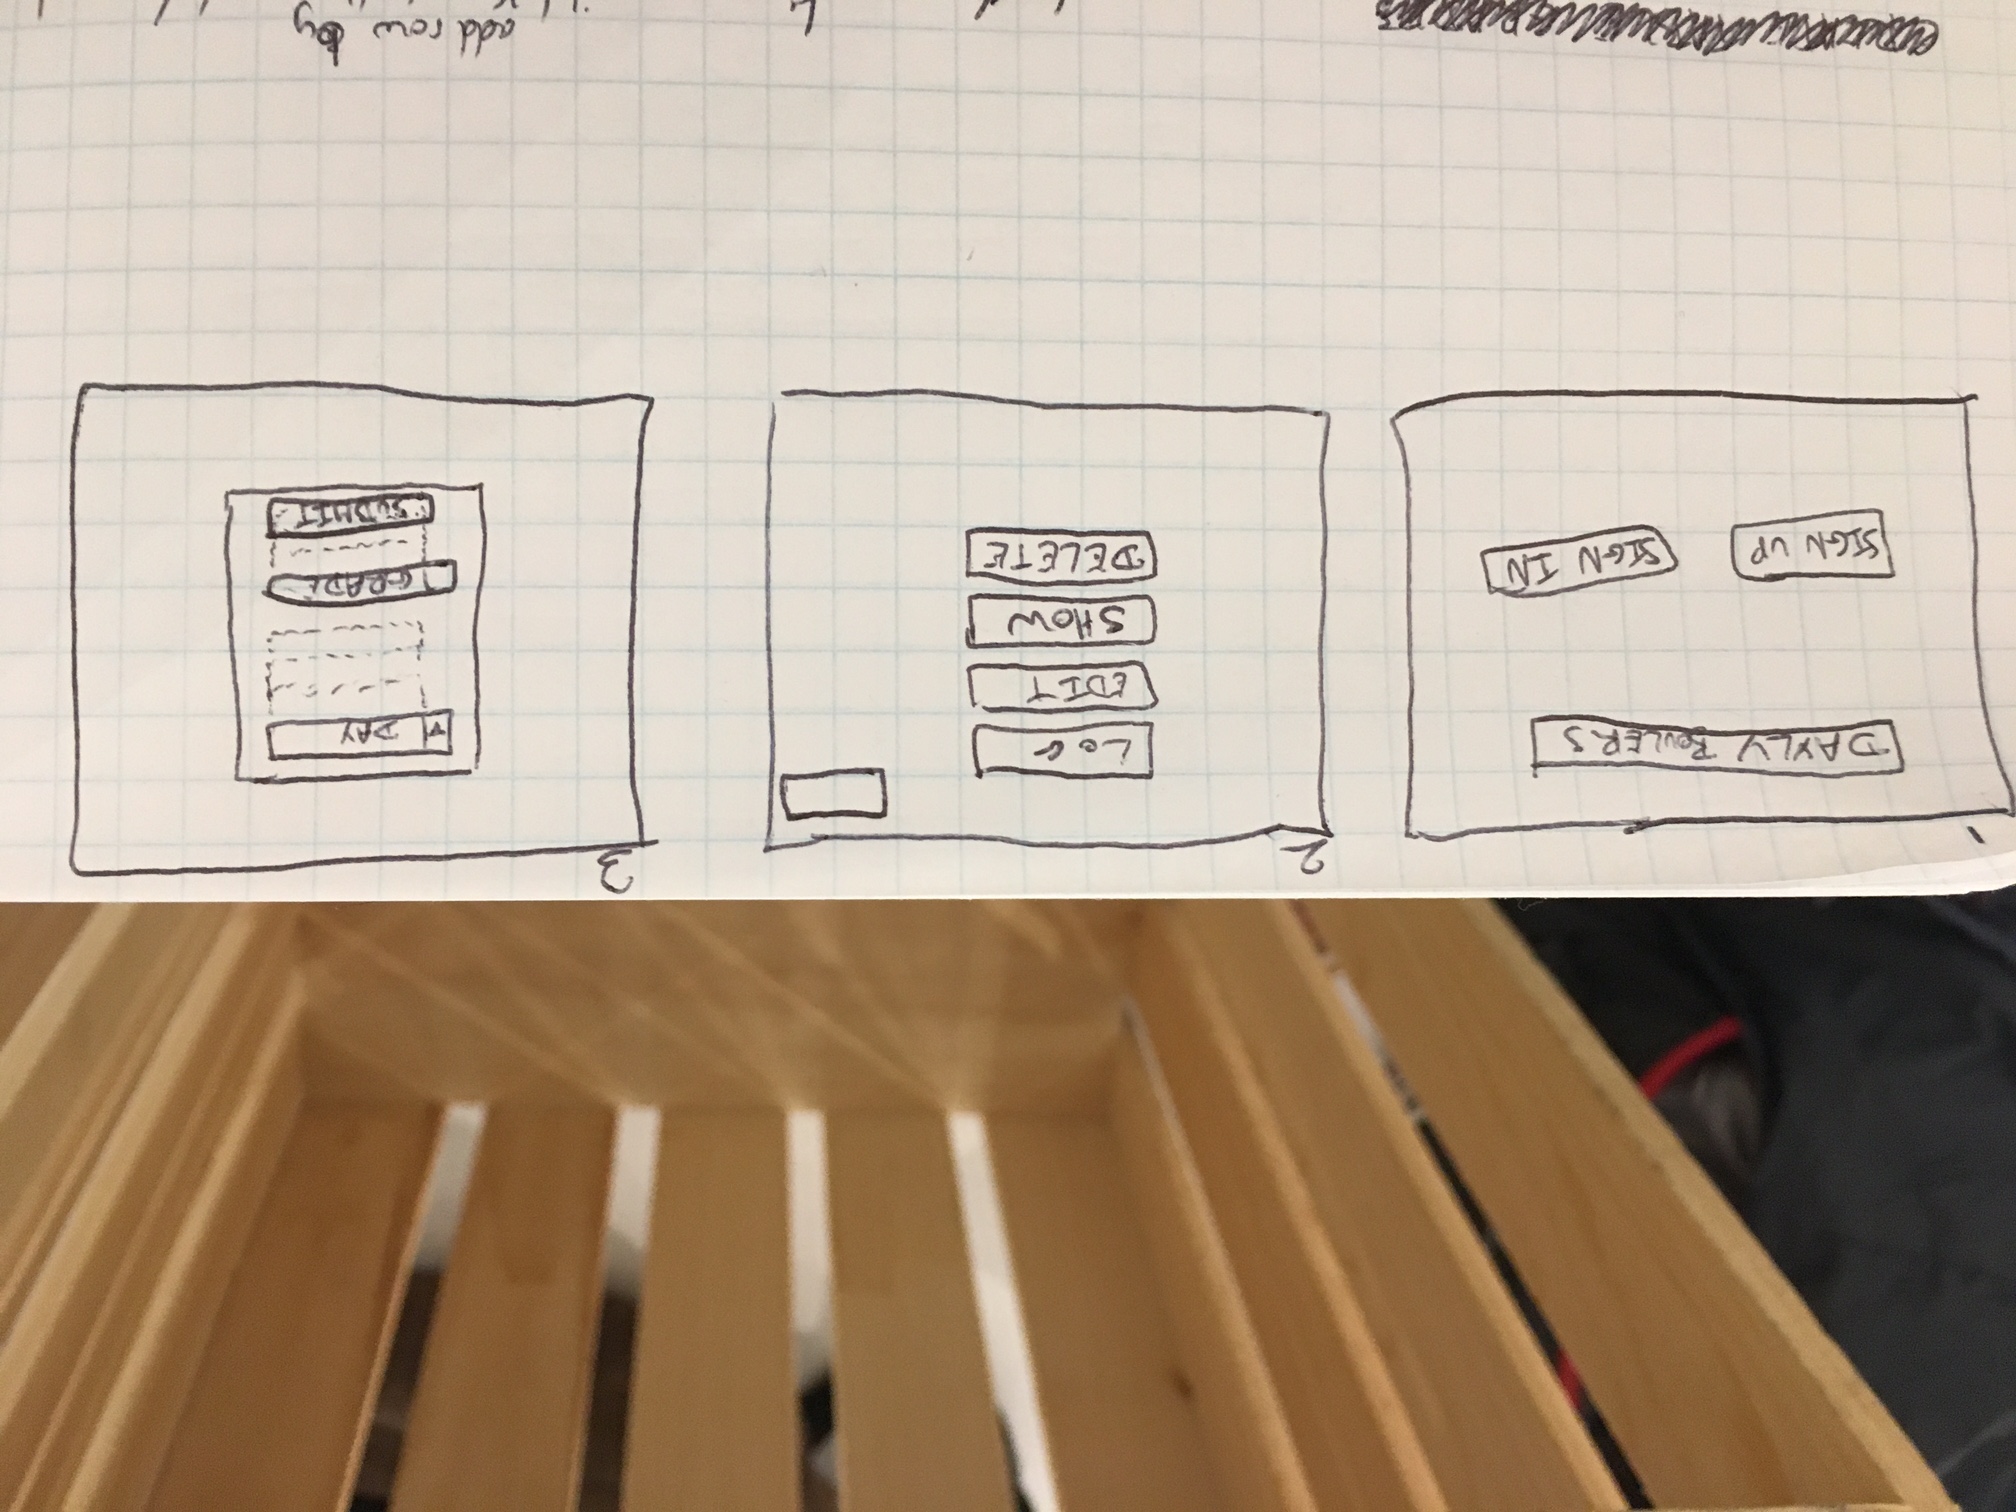 1
DAYLY BOULERS
SIGN UP
SIGN IN
2
LOG
EDIT
SHOW
DELETE
3
DAY
GRADE
SUBMIT
add row by